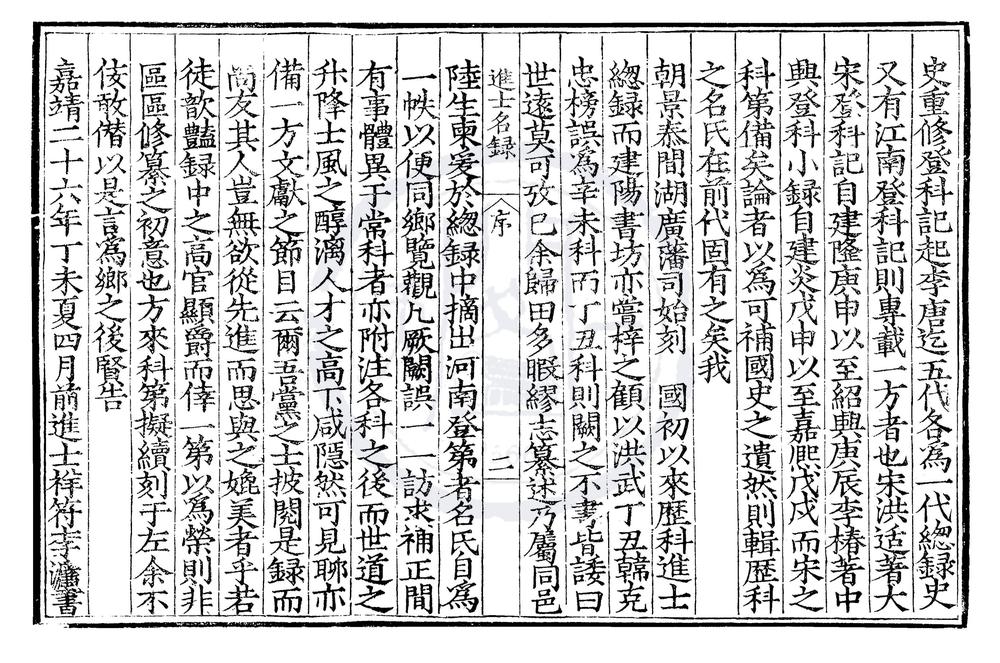 史重修登科記起李唐迄五代各爲一代緫録史
又有江南登科記則專載一方者也宋洪适著大
宋登科記自建隆庚申以至紹興庚辰李椿著中
興登科小録自建炎戊申以至嘉熈戊戌而宋之
科第備矣論者以爲可補國史之遺然則輯歴科
之名氏在前代固有之矣我
朝景泰間湖廣藩司始刻　國初以來歴科進士
緫録而建陽書坊亦嘗梓之顧以洪武丁丑韓克
忠榜誤爲辛未科而丁丑科則闕之不書皆諉曰
世遠莫可攷巳余歸田多暇繆志纂述乃屬同邑
進士名録
序
二
陸生柬爰於緫録中摘出河南登第者名氏自爲
一帙以便同鄉覽觀凢厥闕誤一一訪求補正間
有事體異于常科者亦附注各科之後而世道之
升降士風之醇漓人才之高下咸隱然可見聊亦
備一方文獻之節目云爾吾黨之士披閱是録而
尚友其人豈無欲從先進而思與之媲美者乎若
徒歆豔録中之高官顯爵而倖一第以爲榮則非
區區修纂之初意也方來科第擬續刻于左余不
佞敢僣以是言爲鄉之後賢告
嘉靖二十六年丁未夏四月前進士祥符李濂書